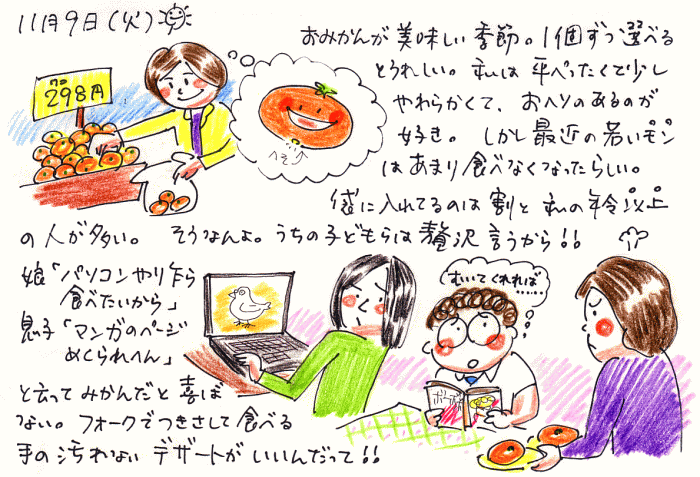 11月9日(火)
おみかんが美味しい季節。1個ずつ選べる
とうれしい。私は平べったくて少し
やわらかくて、おヘソのあるのが
好き。しかし最近の若いモン
はあまり食べなくなったらしい。
袋に入れてるのは割と私の年令以上
の人が多い。そうなんよ。うちの子どもらは贅沢言うから!!
298円
へそへ
娘「パソコンやり乍ら
食べたいから」
息子「マンガのページ
めくられへん」
と言ってみかんだと喜ば
ない。フォークでつきさして食べる
手の汚れない デザートがいいんだって!!
むいてくれれば……